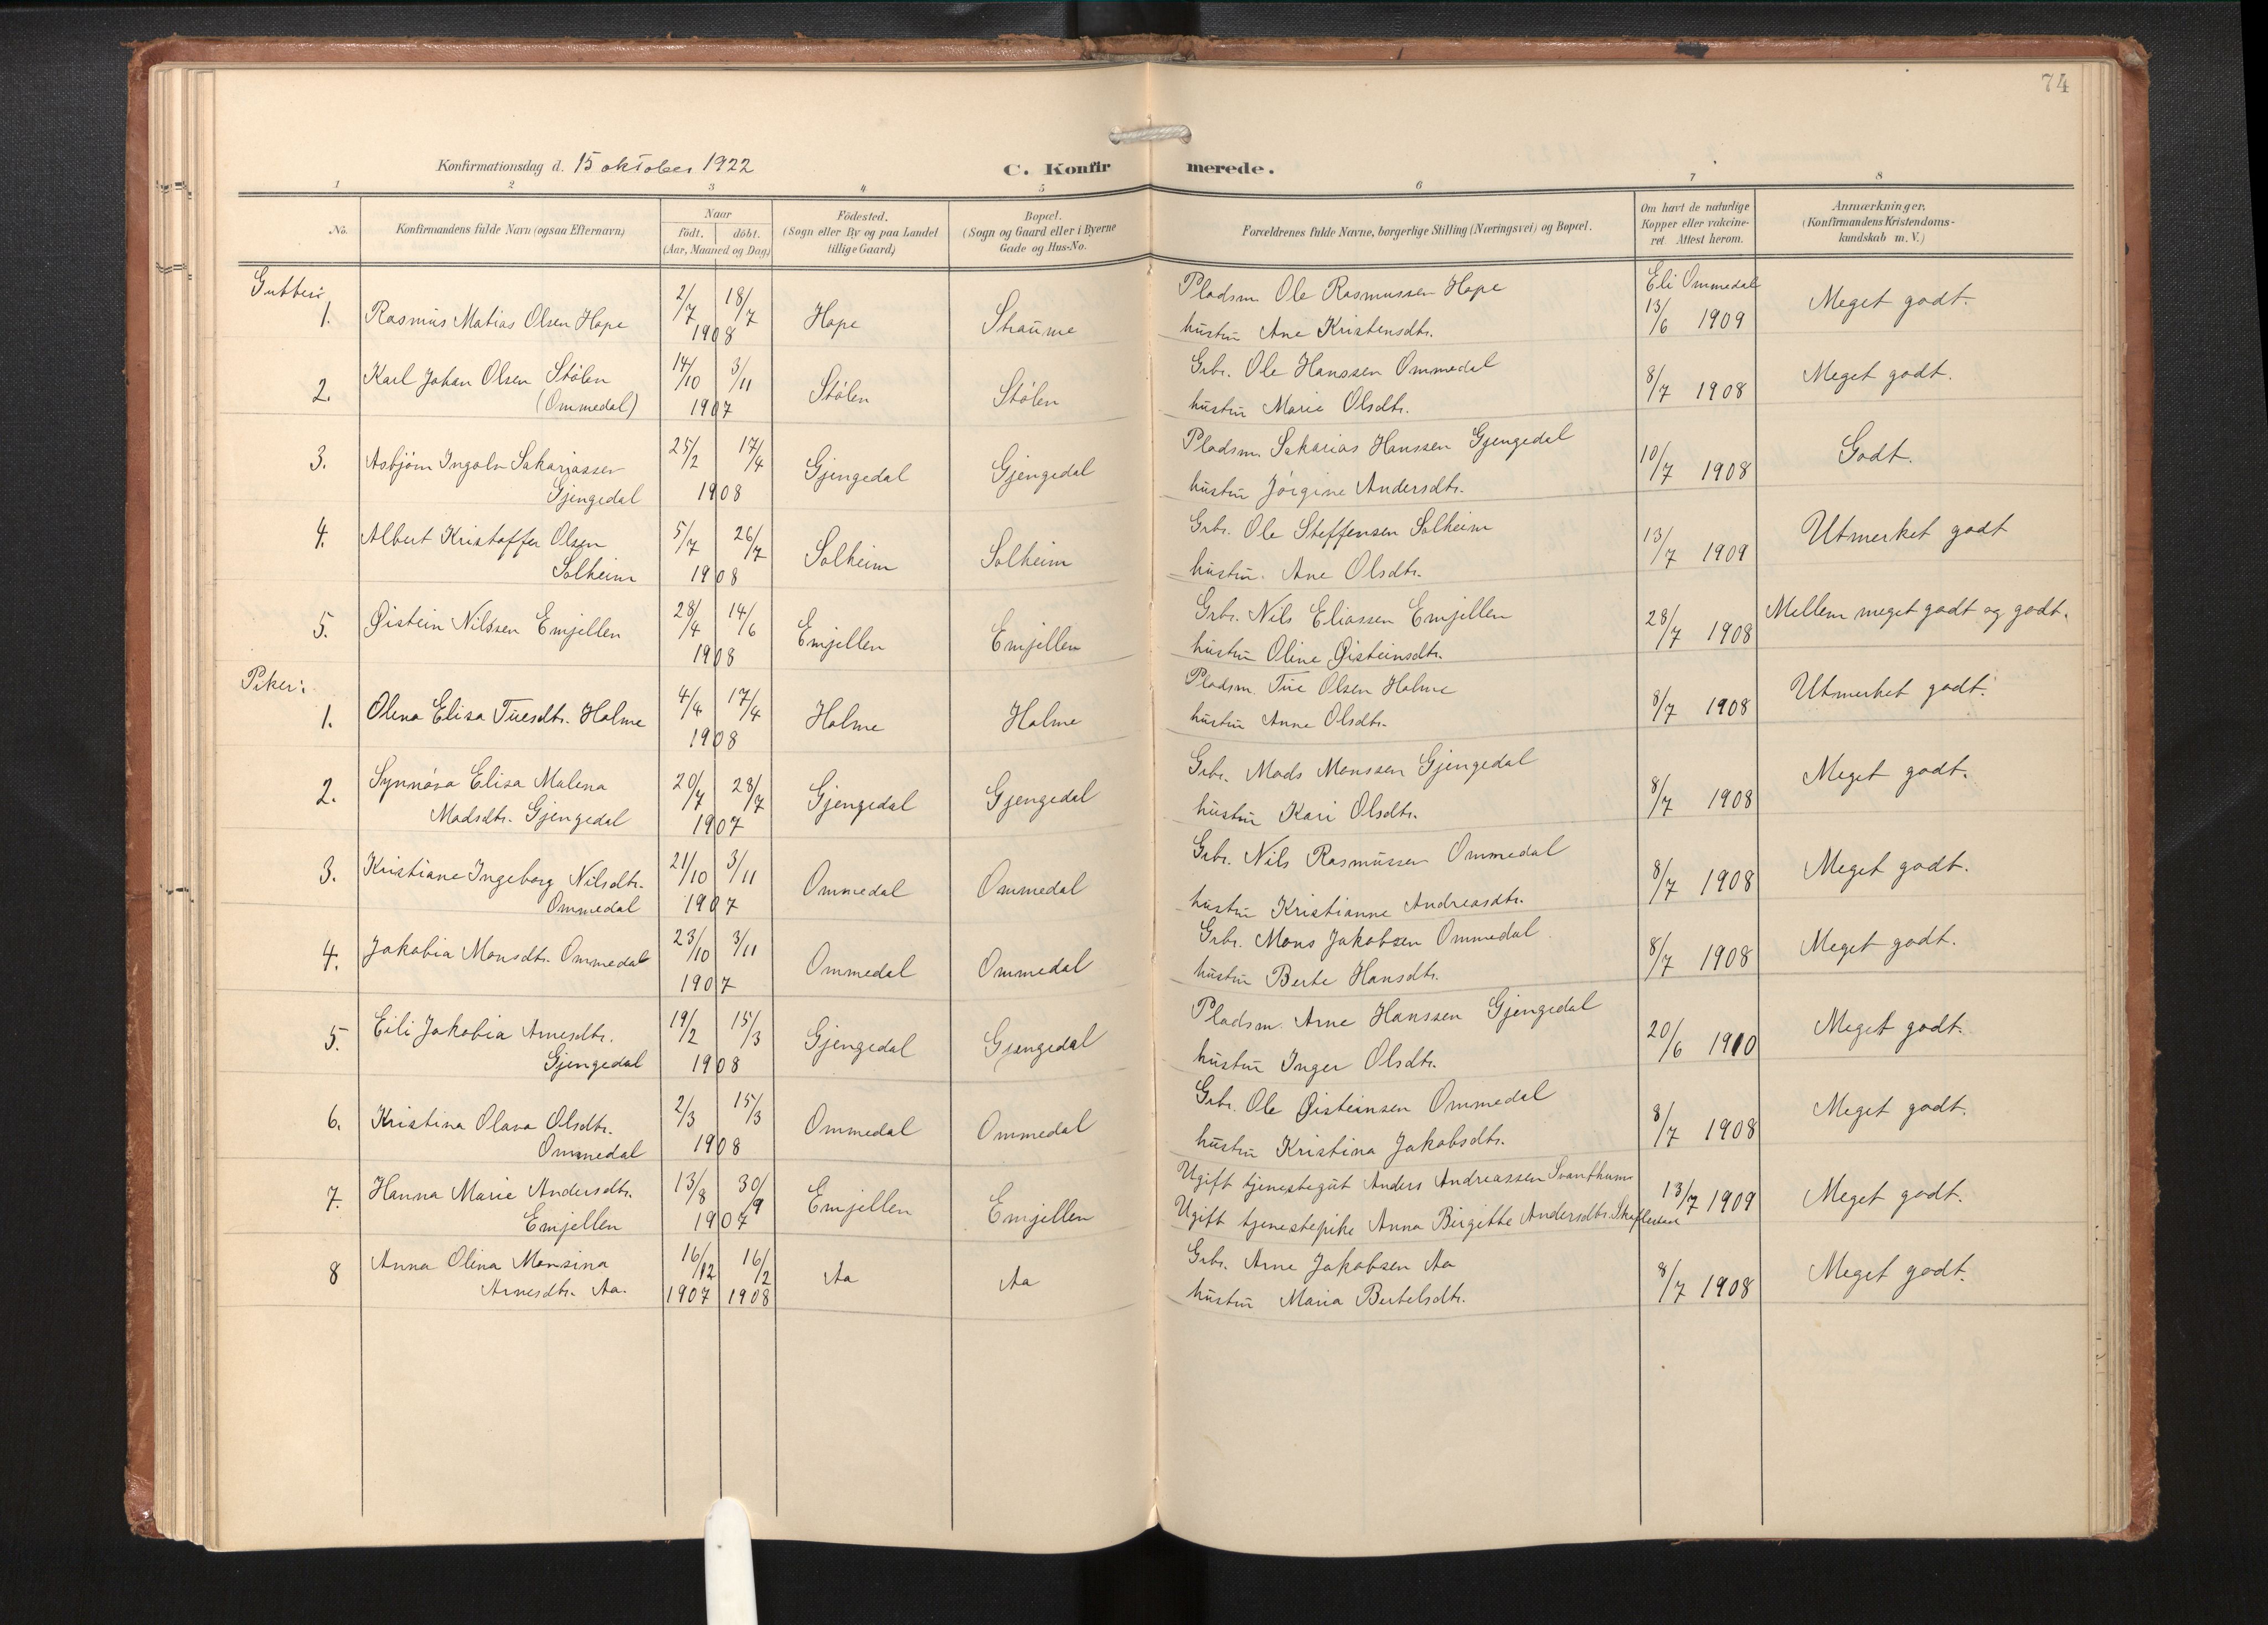 74
Konfirmationsdag d. 15 oktober 1922
C. Konfirmerede.
1 2 3 4 5 6 7 8
No.
Konfirmandens fulde Navn (ogsaa Efternavn)
Naar
födt. döbt.
(Aar, Maaned og Dag)
Födested.
(Sogn eller By og paa Landet
tillige Gaard)
Bopæl.
(Sogn og Gaard eller i Byerne
Gade og Hus-No.
Forældrenes fulde Navne, borgerlige Stilling (Næringsvei) og Bopæl.
Om havt de naturlige
Kopper eller vakcine-
ret Attest herom.
Anmærkninger.
(Konfirmandens Kristendoms-
kundskab m. V.)
Gutter:
1. Rasmus Matias Olsen Hope 2/7 18/7 1908 Hope Straume
Pladsm. Ole Rasmussen Hope
hustru Ane Kristensdtr.
Eli Ommedal
13/6 1909 Meget godt.
2. Karl Johan Olsen Stölen
(Ommedal) 14/10 3/11 1907 Stölen Stölen
Grbr. Ole Hanssen Ommedal
hustru Marie Olsdtr.
8/7 1908 Meget godt.
3. Asbjörn Ingolv Sakariassen
Gjengedal 25/2 17/4 1908 Gjengedal Gjengedal
Pladsm. Sakarias Hanssen Gjengedal
hustru Jörgine Andersdtr.
10/7 1908 Godt.
4. Albert Kristoffer Olsen
Solheim 5/7 26/7 1908 Solheim Solheim
Grbr. Ole Steffensen Solheim
hustru. Ane Olsdtr.
13/7 1909 Utmerket godt
5. Øistein Nilssen Emjellen 28/4 14/6 1908 Emjellen Emjellen
Grbr. Nils Eliassen Emjellen
hustru Oline Øisteinsdtr.
28/7 1908 Mellem meget godt og godt.
Piker:
1. Olena Elisa Tuesdtr. Holme 4/4 17/4 1908 Holme Holme
Pladsm. Tue Olsen Holme
hustru Anne Olsdtr.
8/7 1908 Utmerket godt.
2. Synnöva Elisa Malena
Madsdtr. Gjengedal 20/7 28/7 1907 Gjengedal Gjengedal
Grbr. Mads Monssen Gjengedal
hustru Kari Olsdtr.
8/7 1908 Meget godt.
3. Kristiane Ingeborg Nilsdtr.
Ommedal 21/10 3/11 1907 Ommedal Ommedal
Grbr. Nils Rasmussen Ommedal
hustru Kristianne Andreasdtr.
8/7 1908 Meget godt.
4. Jakobia Monsdtr. Ommedal 23/10 3/11 1907 Ommedal Ommedal
Grbr. Mons Jakobsen Ommedal
hustru Berte Hansdtr.
8/7 1908 Meget godt.
5. Eili Jakobia Arnesdtr.
Gjengedal 19/2 15/3 1908 Gjengedal Gjengedal
Pladsm. Arne Hanssen Gjengedal
hustru Inger Olsdtr.
20/6 1910 Meget godt.
6. Kristina Olava Olsdtr.
Ommedal 2/3 15/3 1908 Ommedal Ommedal
Grbr. Ole Øisteinsen Ommedal
hustru Kristina Jakobsdtr.
8/7 1908 Meget godt.
7. Hanna Marie Andersdtr.
Emjellen 13/8 30/9 1907 Emjellen Emjellen
Ugift tjenestegut Anders Andreassen
Ugift tjenestepike Anna Birgitte Andersdtr.
13/7 1909 Meget godt.
8 Anna Olina Monsina
Arnesdtr. Aa. 16/12 1907 16/2 1908 Aa Aa
Grbr. Arne Jakobsen Aa
hustru Maria Bertelsdtr.
8/7 1908 Meget godt.